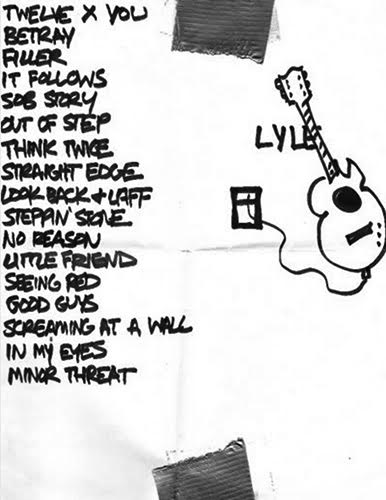 TWELVE X YOU
BETRAY
FILLER
IT FOLLOWS
SOB STORY
OUT OF STEP
THINK TWICE
STRAIGHT EDGE
LOOK BACK + LAFF
STEPPIN' STONE
NO REASON
LITTLE FRIEND
SEEING RED
GOOD GUYS
SCREAMING AT A WALL
IN MY EYES
MINOR THREAT
LYLE